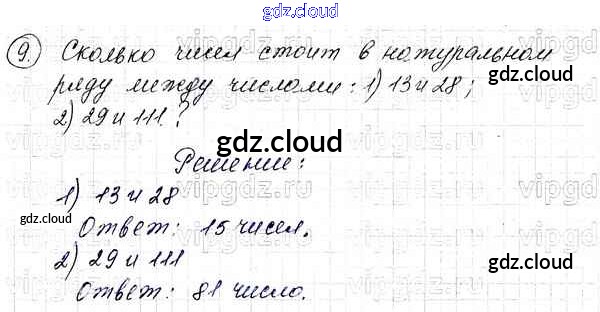 gdz.cloud
9. Сколько чисел стоит в натуральном
ряду между числами: 1) 13 и 28;
gdz.cloud
2) 29 и 111.?
gdz.cloud
Решение:
1) 13 и 28
gdz.cloud
Ответ: 15 чисел.
gdz.cloud
2) 29 и 111
gdz.cloud
Ответ: 81 число.